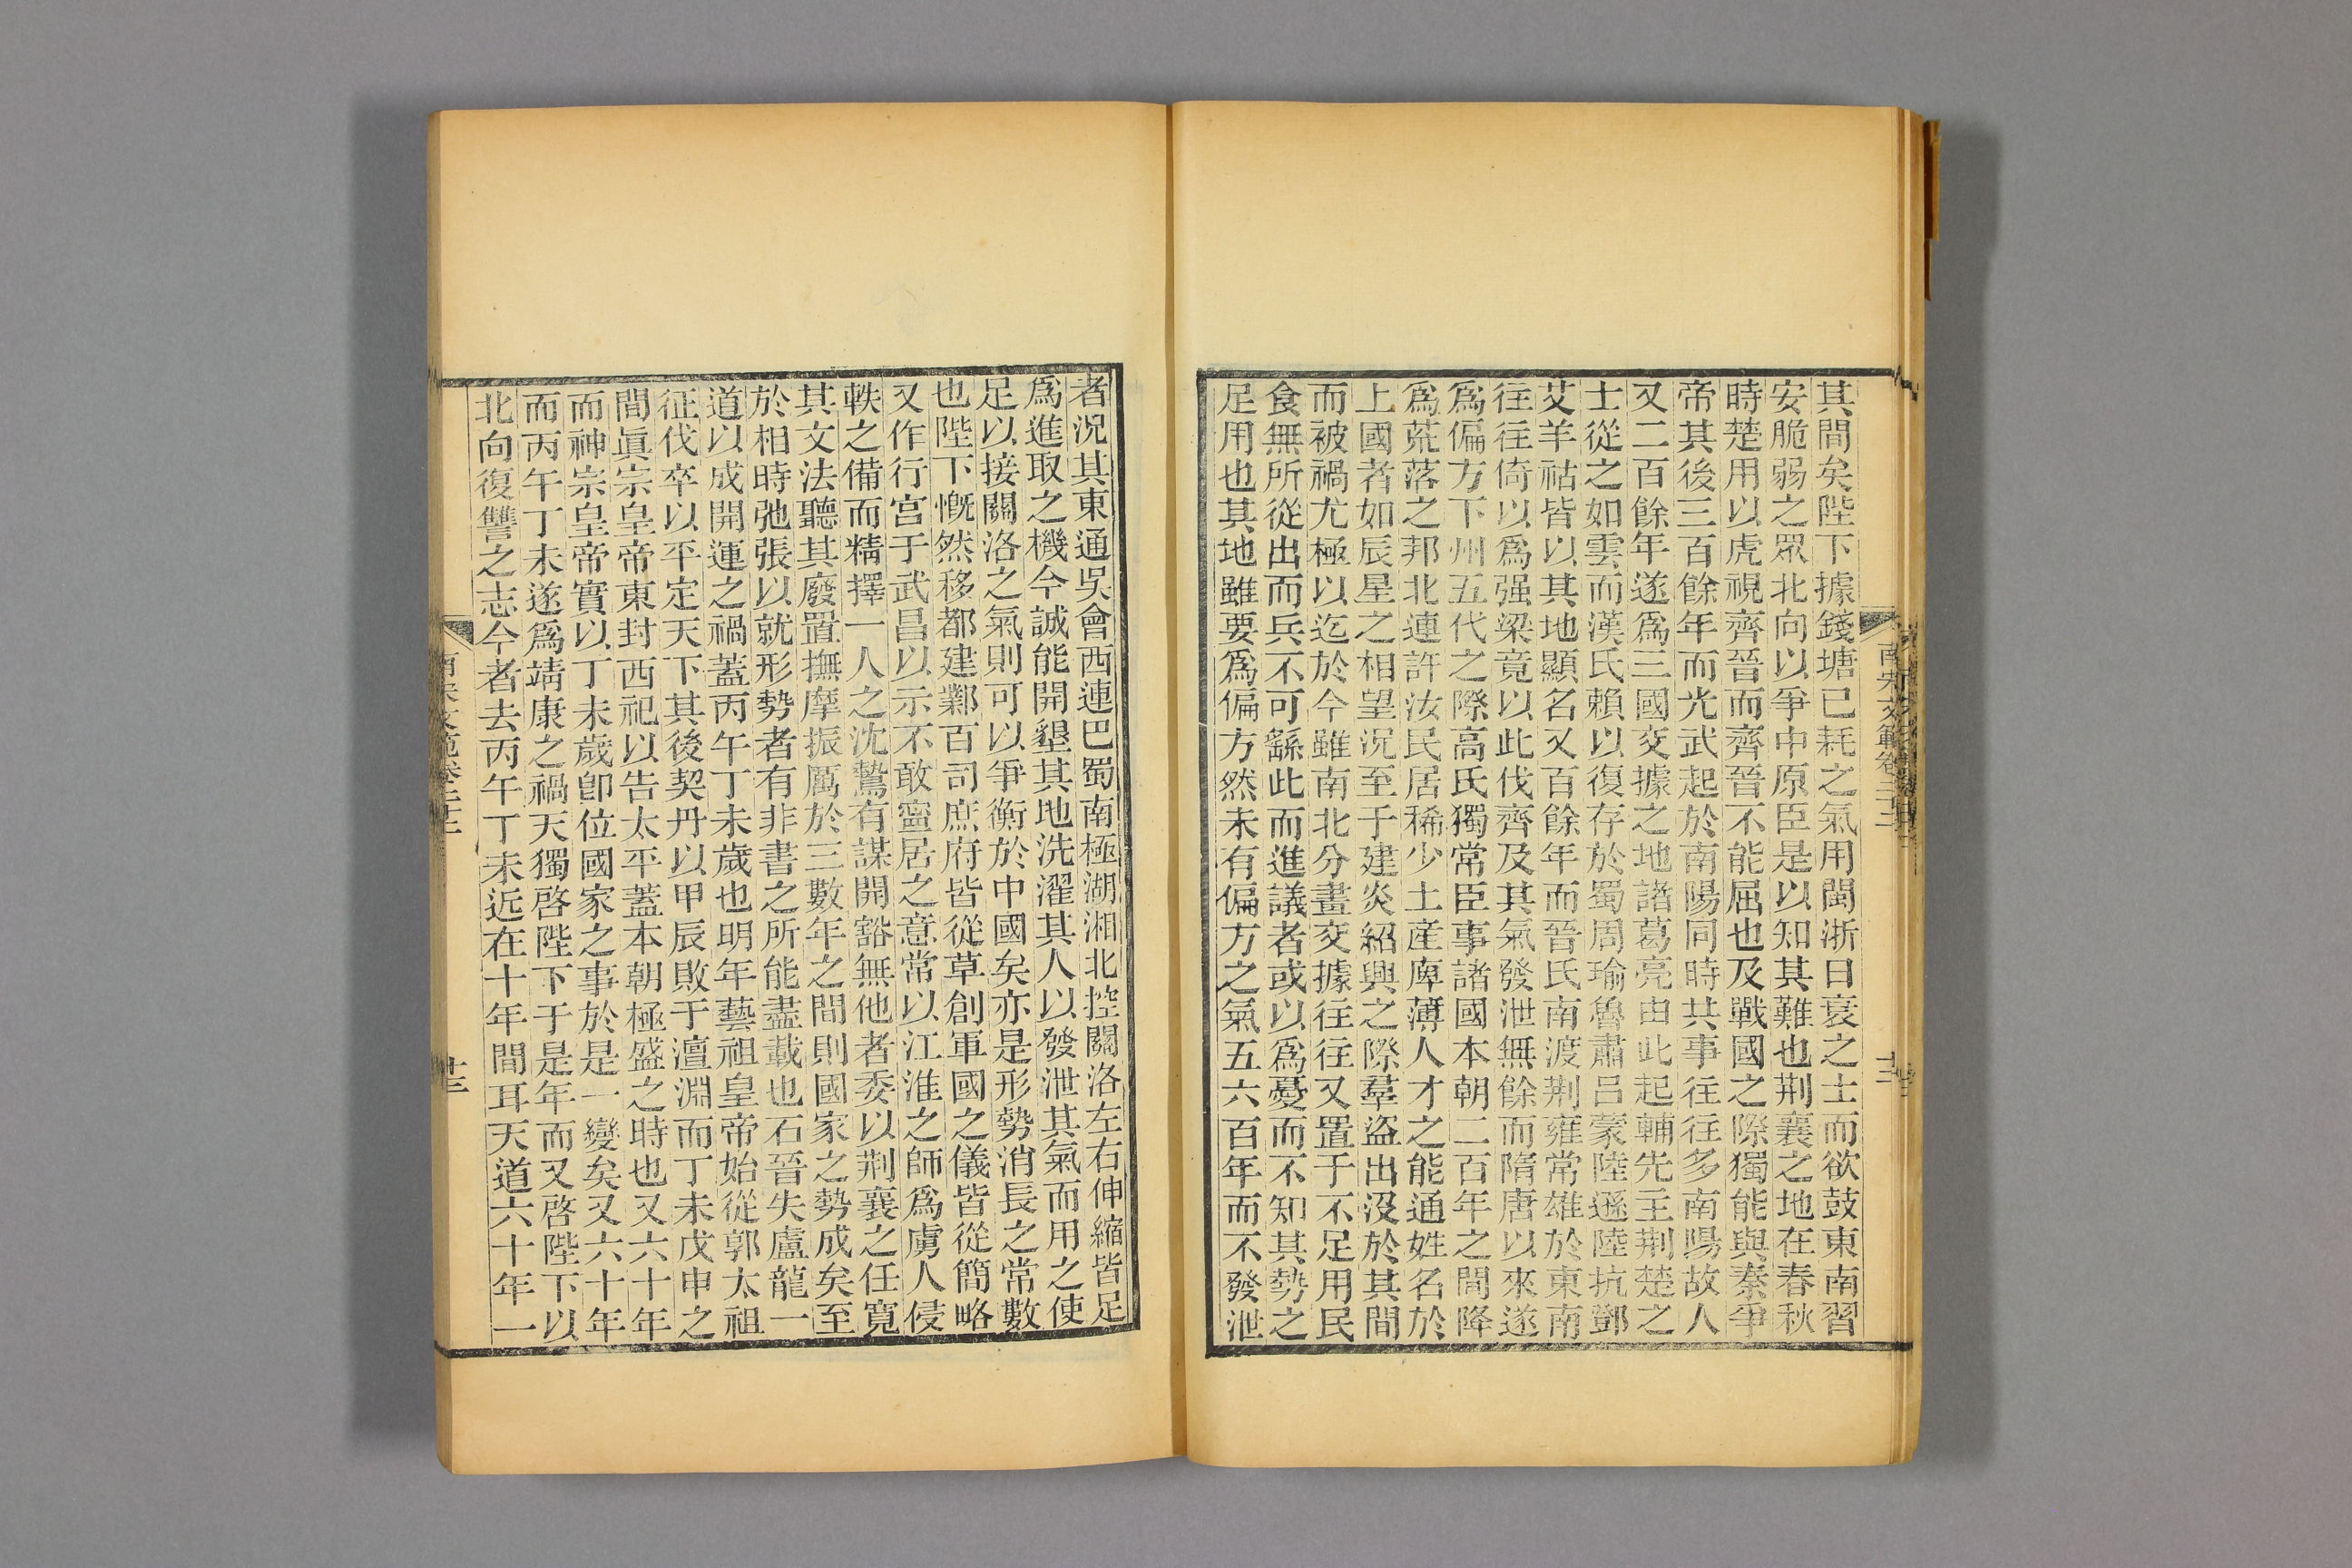 其間矣陛下據錢塘已耗之氣用閩浙日衰之士而欲鼓東南習
安脆弱之眾北向以爭中原臣是以知其難也荆襄之地在春秋
時楚用以虎視齊晉而齊晉不能屈也及戰國之際獨能與秦爭
帝其後三百餘年而光武起於南陽同時共事往往多南陽故人
又二百餘年遂爲三國交據之地諸葛亮由此起輔先主荆楚之
士從之如雲而漢氏賴以復存於蜀周瑜魯肅呂蒙陸遜陸抗鄧
艾羊祜皆以其地顯名又百餘年而晉氏南渡荆雍常雄於東南
往往倚以爲强梁竟以此伐齊及其氣發泄無餘而隋唐以來遂
爲偏方下州五代之際高氏獨常臣事諸國本朝二百年之間降
爲荒落之邦北連許汝民居稀少土産庳薄人才之能通姓名於
上國者如辰星之相望況至于建炎紹興之際羣盜出沒於其間
而被禍尤極以迄於今雖南北分畫交據往往又置于不足用民
食無所從出而兵不可繇此而進議者或以爲憂而不知其勢之
足用也其地雖要爲偏方然未有偏方之氣五六百年而不發泄
南宋文範卷二十二
者況其東通吳會西連巴蜀南極湖湘北控關洛左右伸縮皆足
爲進取之機今誠能開墾其地洗濯其人以發泄其氣而用之使
足以接關洛之氣則可以爭衡於中國矣亦是形勢消長之常數
也陛下慨然移都建鄴百司庶府皆從草創軍國之儀皆從簡略
又作行宫于武昌以示不敢寧居之意常以江淮之師爲虜人侵
軼之備而精擇一人之沈鷙有謀開豁無他者委以荆襄之任寬
其文法聽其廢置撫摩振厲於三數年之間則國家之勢成矣至
於相時弛張以就形勢者有非書之所能盡載也石晉失盧龍一
道以成開運之禍蓋丙午丁未歲也明年藝祖皇帝始從郭太祖
征伐卒以平定天下其後契丹以甲辰敗于澶淵而丁未戊申之
間眞宗皇帝東封西祀以告太平蓋本朝極盛之時也又六十年
而神宗皇帝實以丁未歲卽位國家之事於是一變矣又六十年
而丙午丁未遂爲靖康之禍天獨啓陛下于是年而又啓陛下以
北向復讐之志今者去丙午丁未近在十年間耳天道六十年一